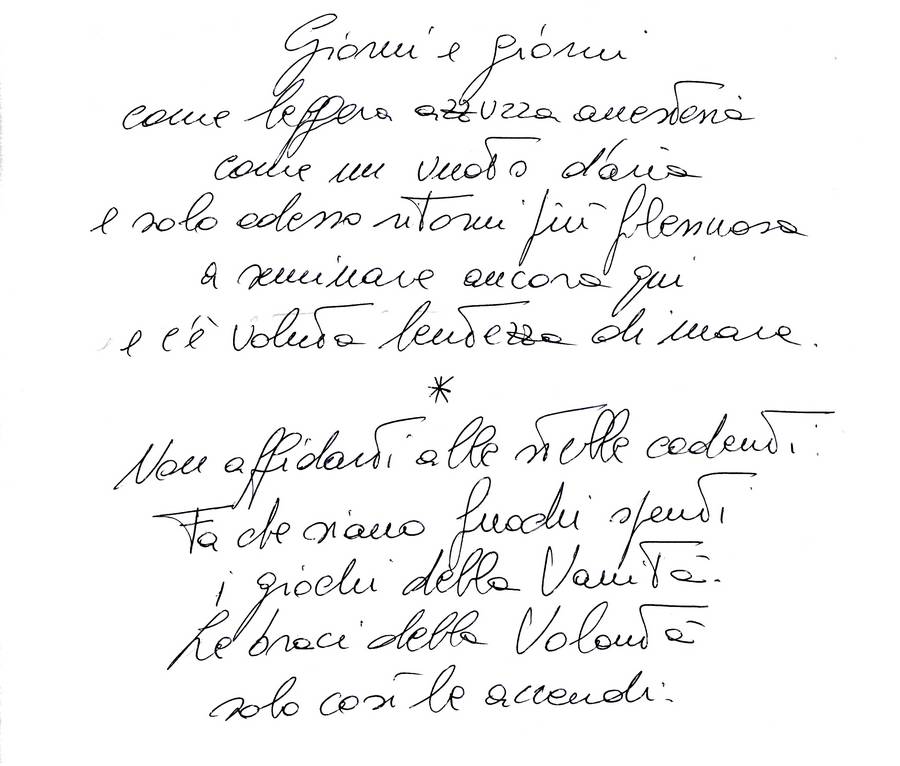 Giorni e giorni
come leggera azzurra anestesia
come un vuoto d'aria
e solo adesso ritorni più flessuosa
a seminare ancora qui
e c'è voluta lentezza di mare.
*
Non affidarti alle stelle cadenti.
Fa che siano fuochi spenti
i giochi della Vanità.
Le braci della Volontà
solo così le accendi.